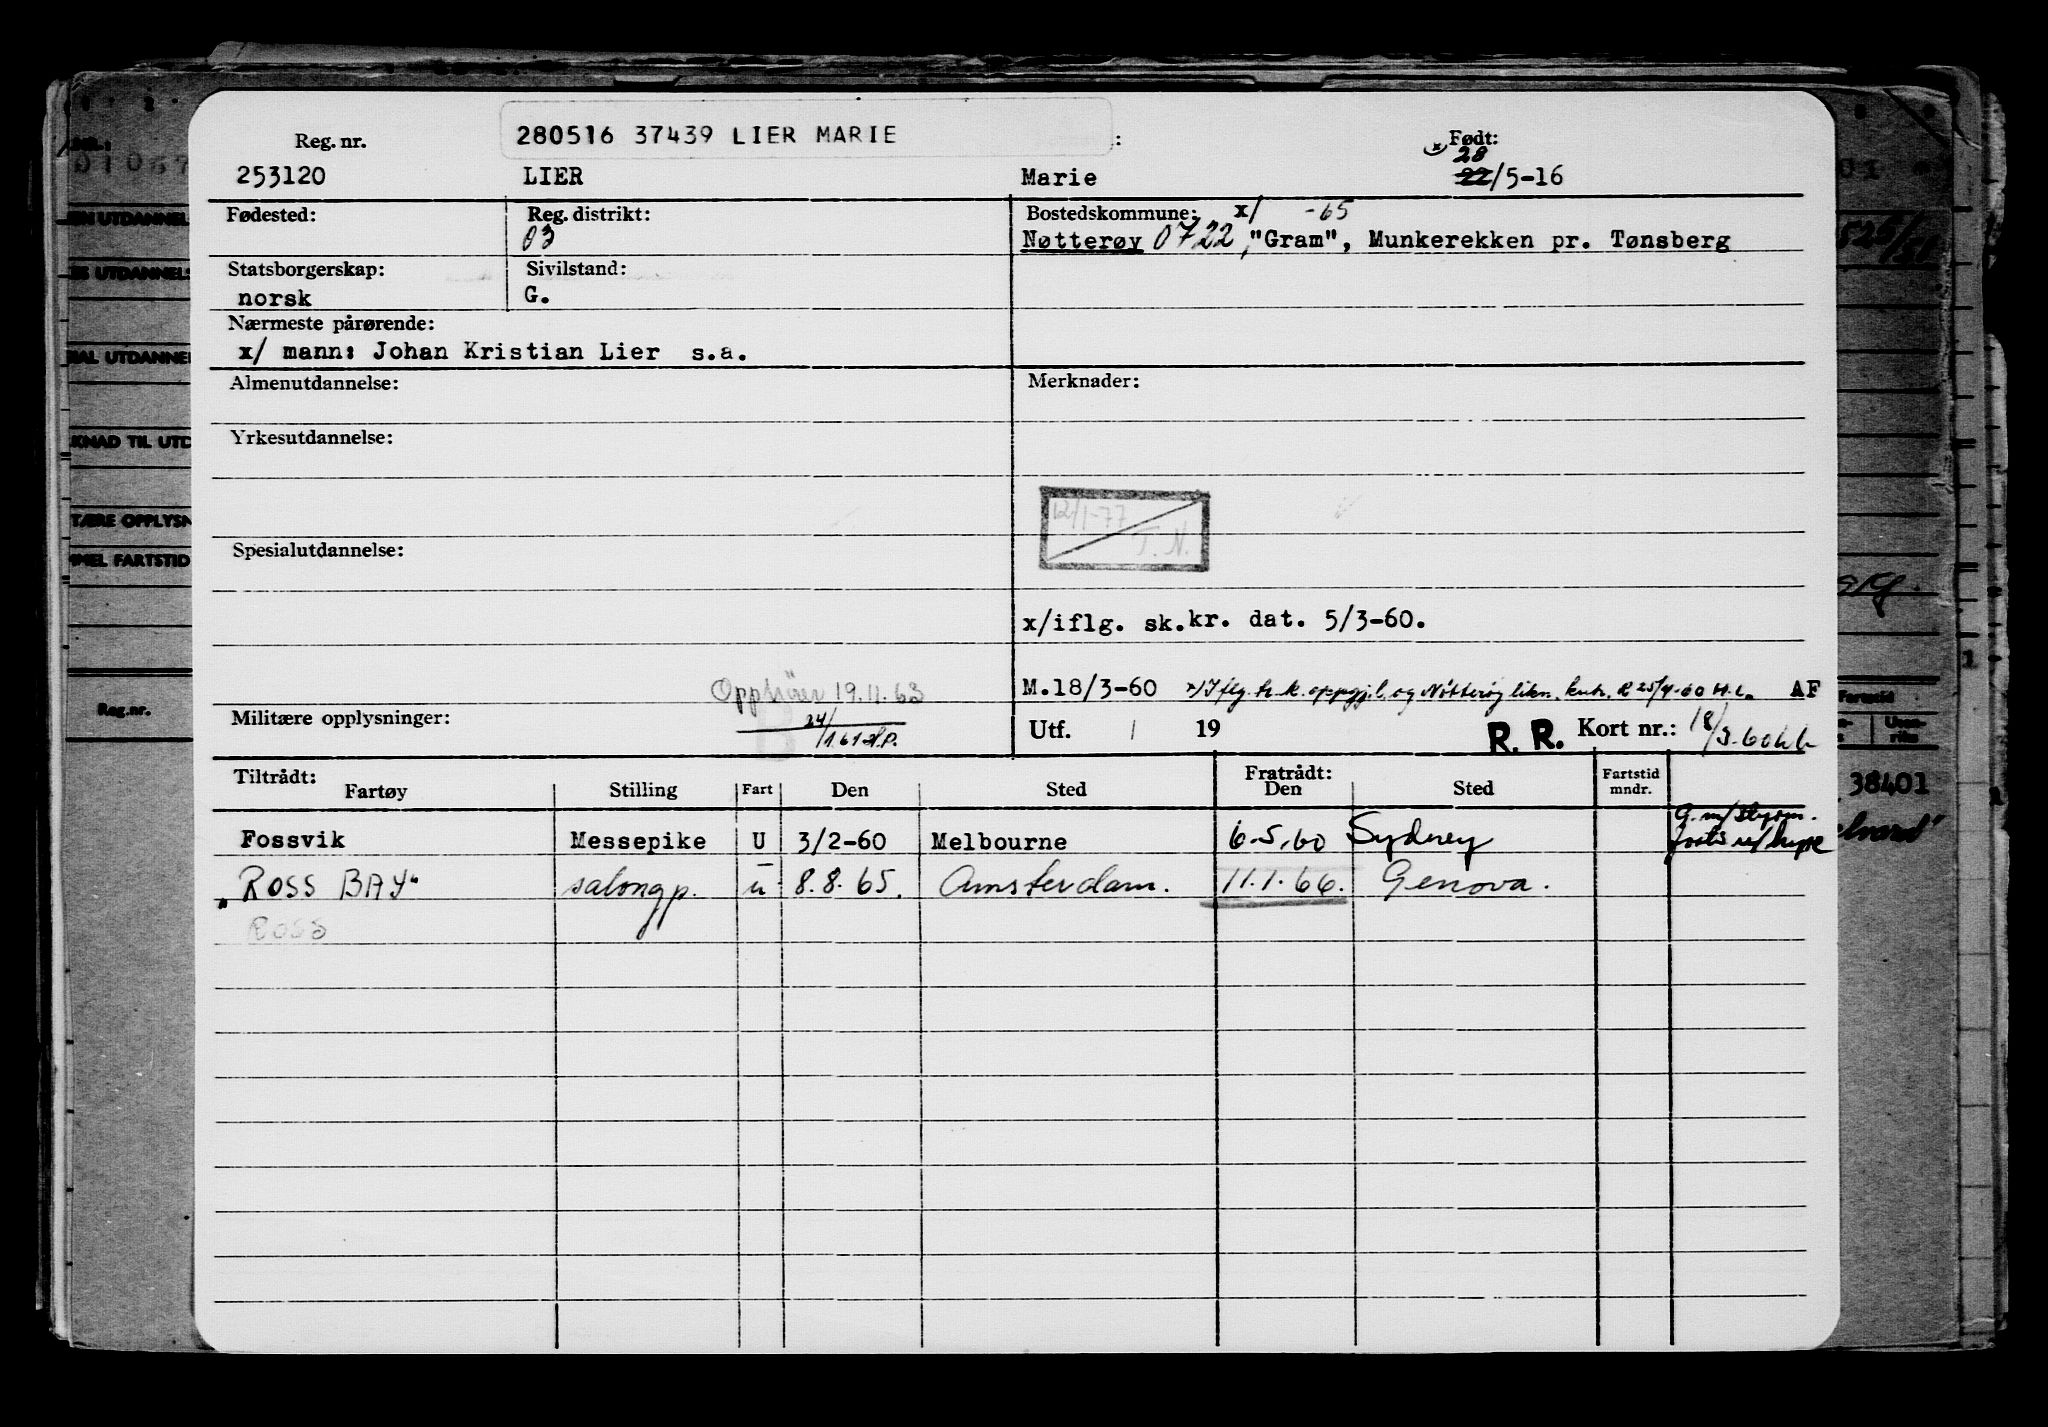 280516 37439 LIER MARIE
Reg. nr. : Født:
28
253120 LIER Marie 22/5-16
Fødested: Reg. distrikt: Bostedskommune: x/ -65
03 Nøtterøy 0722, "Gram", Munkerekken pr. Tønsberg
Statsborgerskap: Sivilstand:
norsk G.
Nærmeste pårørende:
x/ mann: Johan Kristian Lier s.a.
Almenutdannelse: Merknader:
Yrkesutdannelse:
12/1-77
T. N.
Spesialutdannelse:
x/iflg. sk.kr. dat. 5/3-60.
Opphører 19.11.63 M.18/3-60 x/ Iflg. tr. k. oppgj. l. og Nøtterøy likn. kntr. R 25/4-60 H.L. AF
Militære opplysninger: 24/1.61 Utf. / 19 R. R. Kort nr.: 18/3.60
Tiltrådt: Fratrådt:
Fartøy Stilling Fart Den Sted Den Sted Fartstid mndr.
G. m/styrm.
Fossvik Messepike U 3/2-60 Melbourne 6.5.60 Sydney
"ROSS BAY" salongp. u 8.8.65. Amsterdam. 11.1.66. Genova.
ROSS
UTDANNEL
UTDANNELS
AL UTDANNE
KNAD TIL UTD
TÆRE OPPLYSN
MEL FARTSTID
Reg.nr.
Fartstid
38401